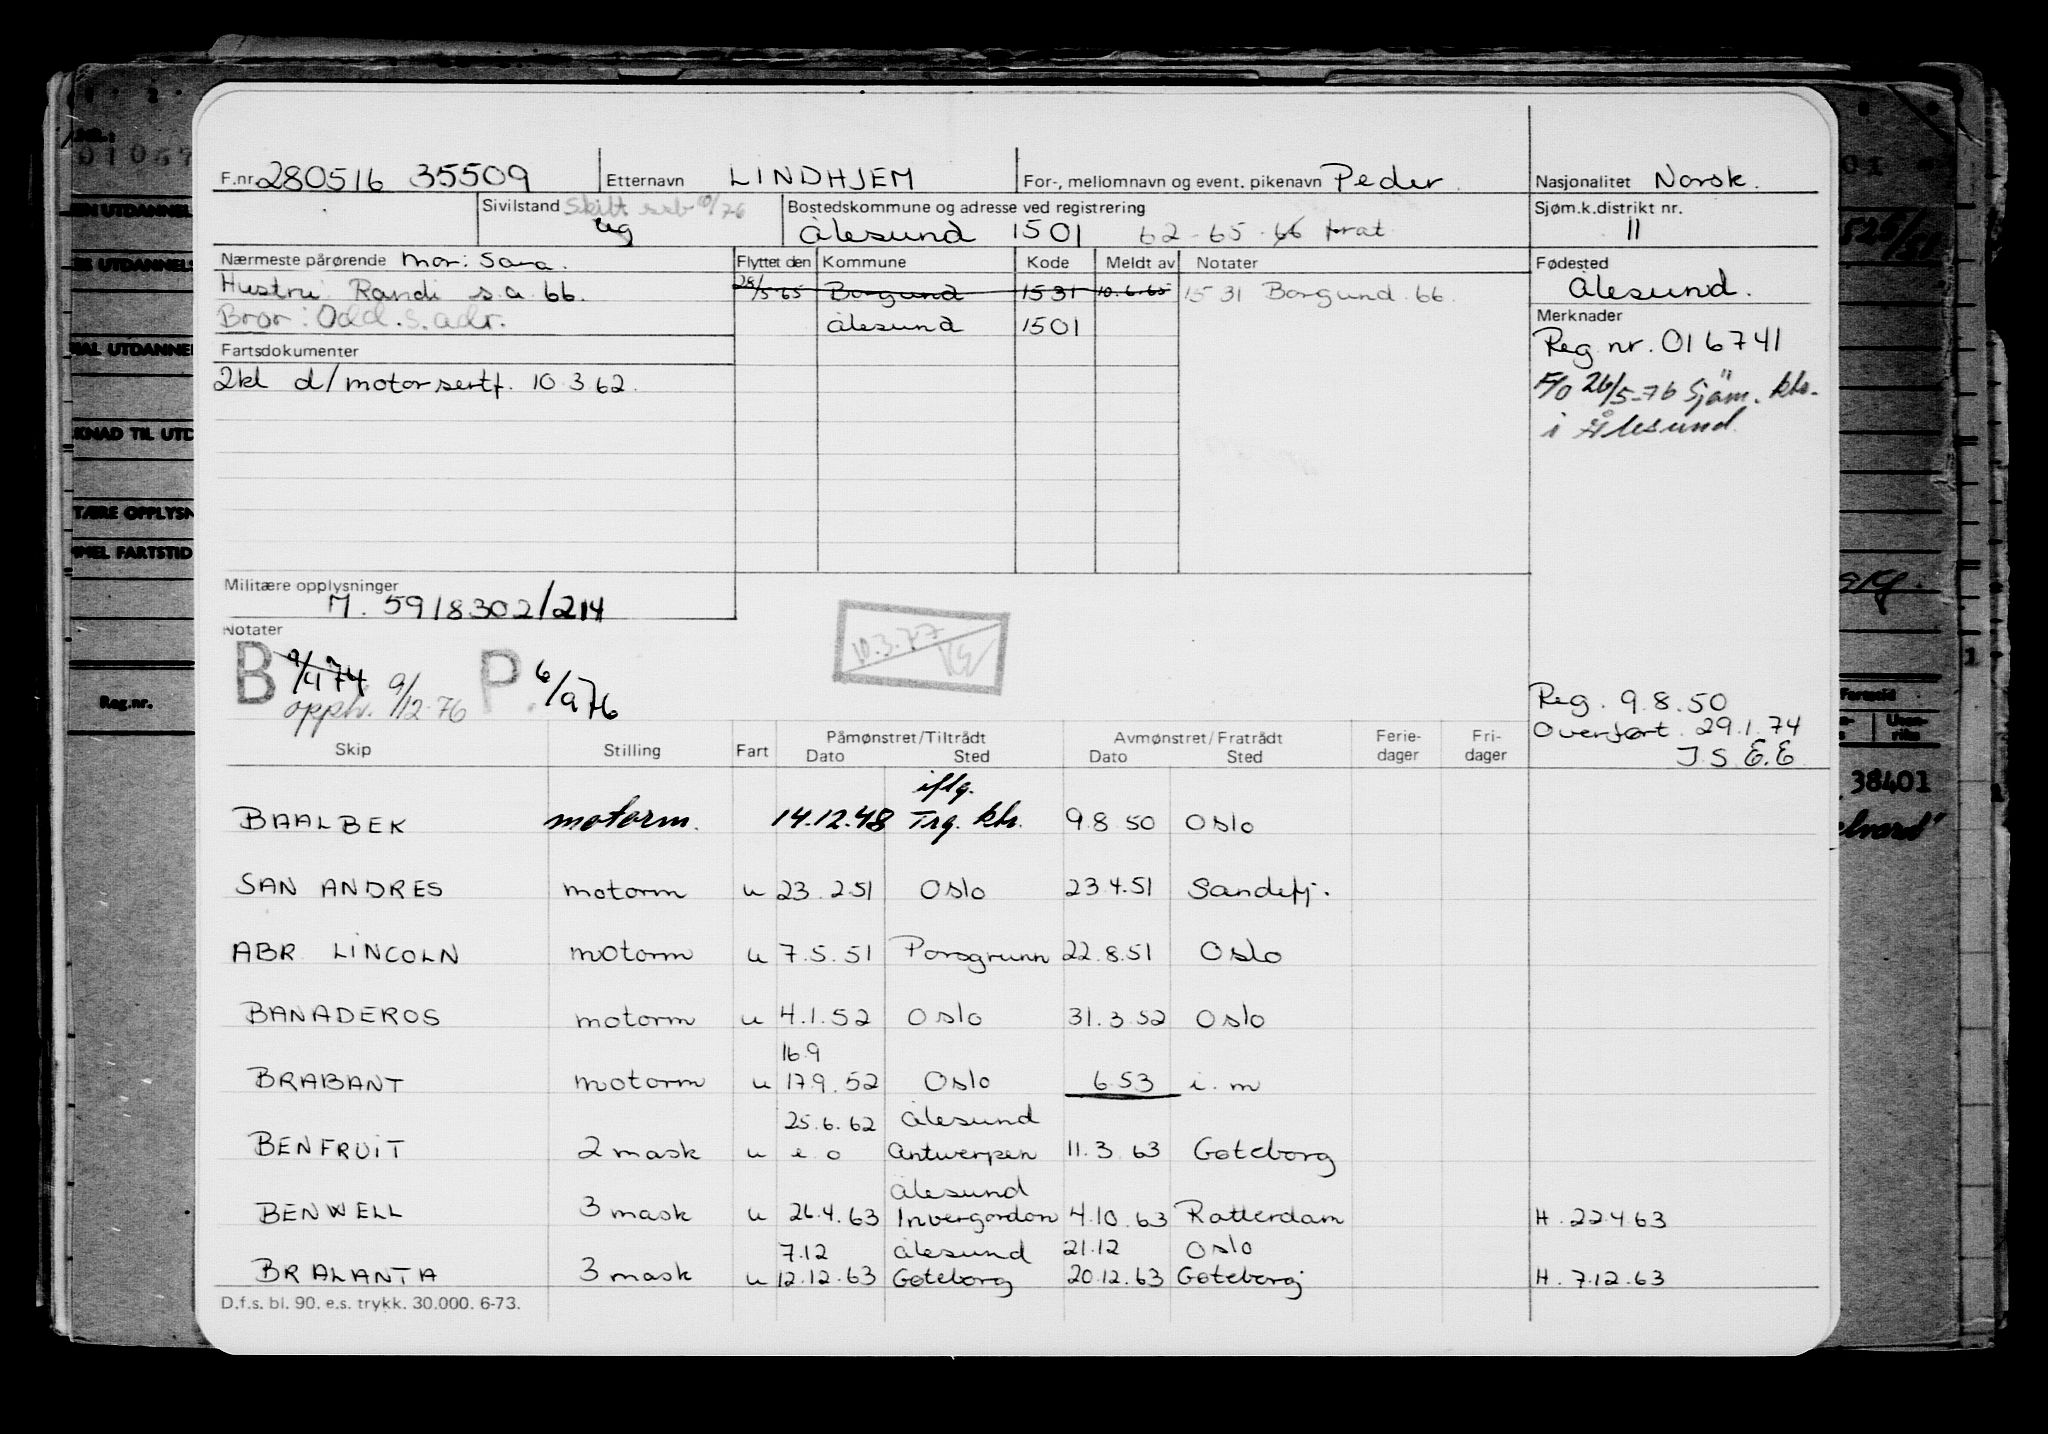 F.nr. 280516 35509 Etternavn LINDHJEM For-, mellomnavn og event. pikenavn Peder. Nasjonalitet Norsk.
Sivilstand Skilt ssb 10/76 ug Bostedskommune og adresse ved registrering Sjøm.k.distrikt nr.
Ålesund 1501 62 - 65 - 66 11
Nærmeste pårørende Mor: Sara. Flyttet den Kommune Kode Meldt av Notater Fødested
Hustru Randi s.a. 66. 28/5 65 Borgund 1531 10.6.65 1531 Borgund 66. Ålesund.
Bror: Odd. s. adr. Ålesund 1501 Merknader
Fartsdokumenter Reg nr. 016741
2kl d/motorsertf. 10.3 62. F/O 26/5-76 Sjøm. kto.
i Ålesund
Militære opplysninger
M. 5918302/214
Notater
B 9/4 74 P. 6/9 76 10.3.77
opph. 9/12-76
Reg. 9.8.50
Overført. 29.1.74
J.S E.E
Skip Stilling Fart Påmønstret/Tiltrådt Avmønstret/Fratrådt Ferie- Fri-
Dato Sted Dato Sted dager dager
iflg.
BAALBEK motorm. 14.12.48 Trg. kto. 9.8.50 Oslo
SAN ANDRES motorm u 23.2.51 Oslo 23.4.51 Sandefj.
ABR LINCOLN motorm u 7.5.51 Porsgrunn 22.8.51 Oslo
BANADEROS motorm u 4.1.52 Oslo 31.3.52 Oslo
16.9
BRABANT motorm u 17.9.52 Oslo 6.53 i.m
25.6.62 Ålesund
BENFRUIT 2 mask u e o Antwerpen 11.3.63 Gøteborg
Ålesund
BENWELL 3 mask u 26.4.63 Invergordon 4.10.63 Rotterdam H. 22.4.63
7.12 Ålesund 21.12 Oslo
BRALANTA 3 mask u 12.12.63 Gøteborg 20.12.63 Gøteborg H. 7.12.63
D.f.s. bl. 90. e.s. trykk. 30.000. 6-73.
Reg.nr.
38401